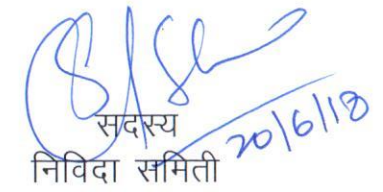 सदस्य
निविदा समिती
20/6/18